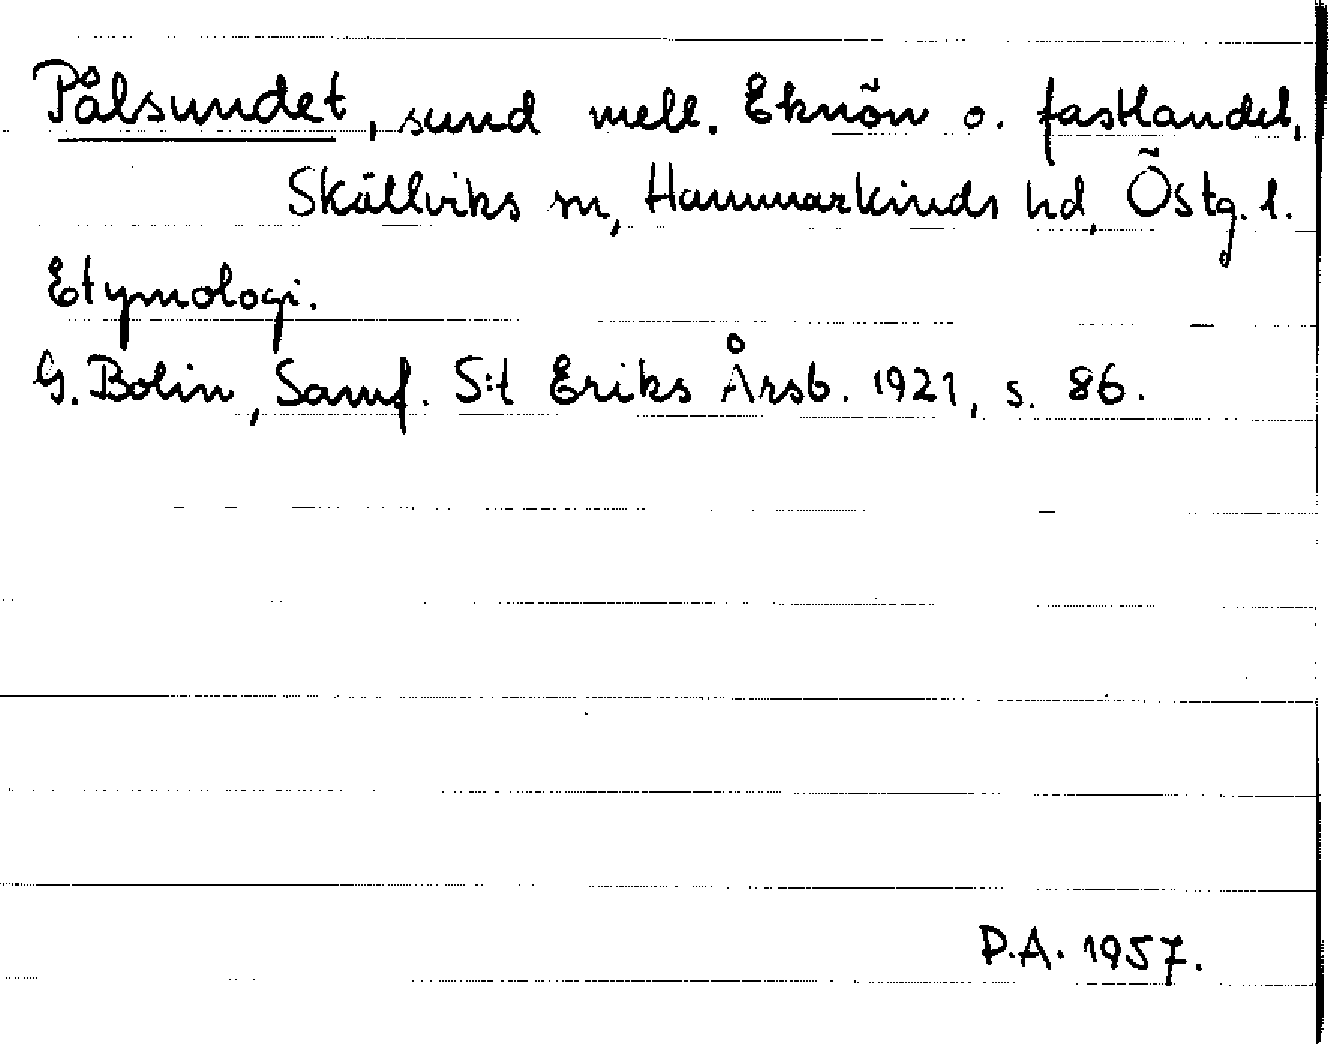 Pålsundet, sund mell. Eknön o. fastlandet,
Skällviks sn, Hammarkinds hd, Östg. l.
Etymologi.
G. Bolin, Samf. S:t Eriks Årsb. 1921, s. 86.
D.A. 1957.